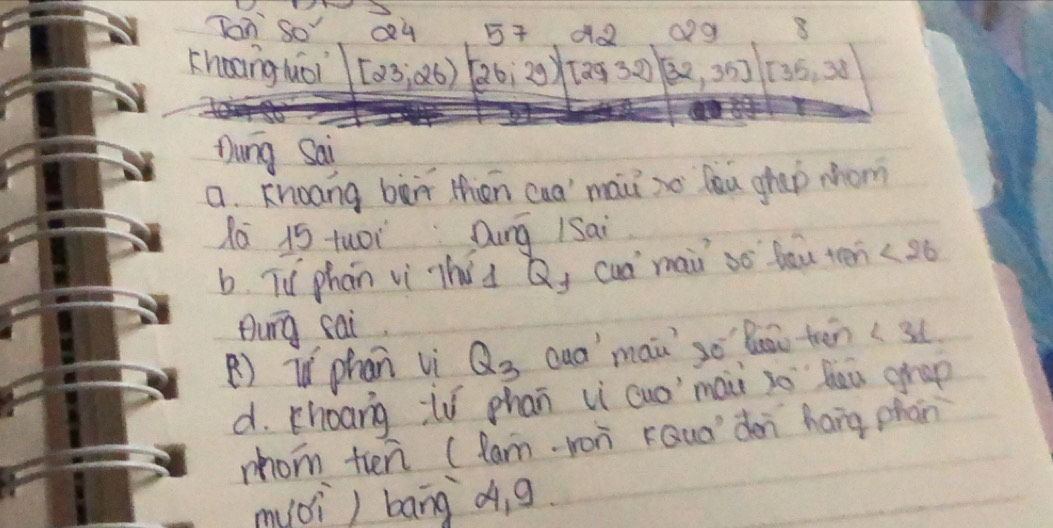 Tần số 24 57 42 29 8
Khoảng tuổi [23; 26) [26; 29) [29 32) [32, 35] [35, 38
Đúng Sai
a. Khoảng biến thiên của mẫu số liệu ghép nhóm
là 15 tuổi : Đúng / Sai
b. Tứ phân vị thứ 1 Q1 của mẫu số liệu trên < 26
Đúng sai.
Tứ phân vị Q3 của mẫu số liệu trên <
d. Khoảng tứ phân vị của mẫu số liệu ghép
nhóm trên ( làm tròn KQuả đến hàng phần
mười ) bằng 4,9.